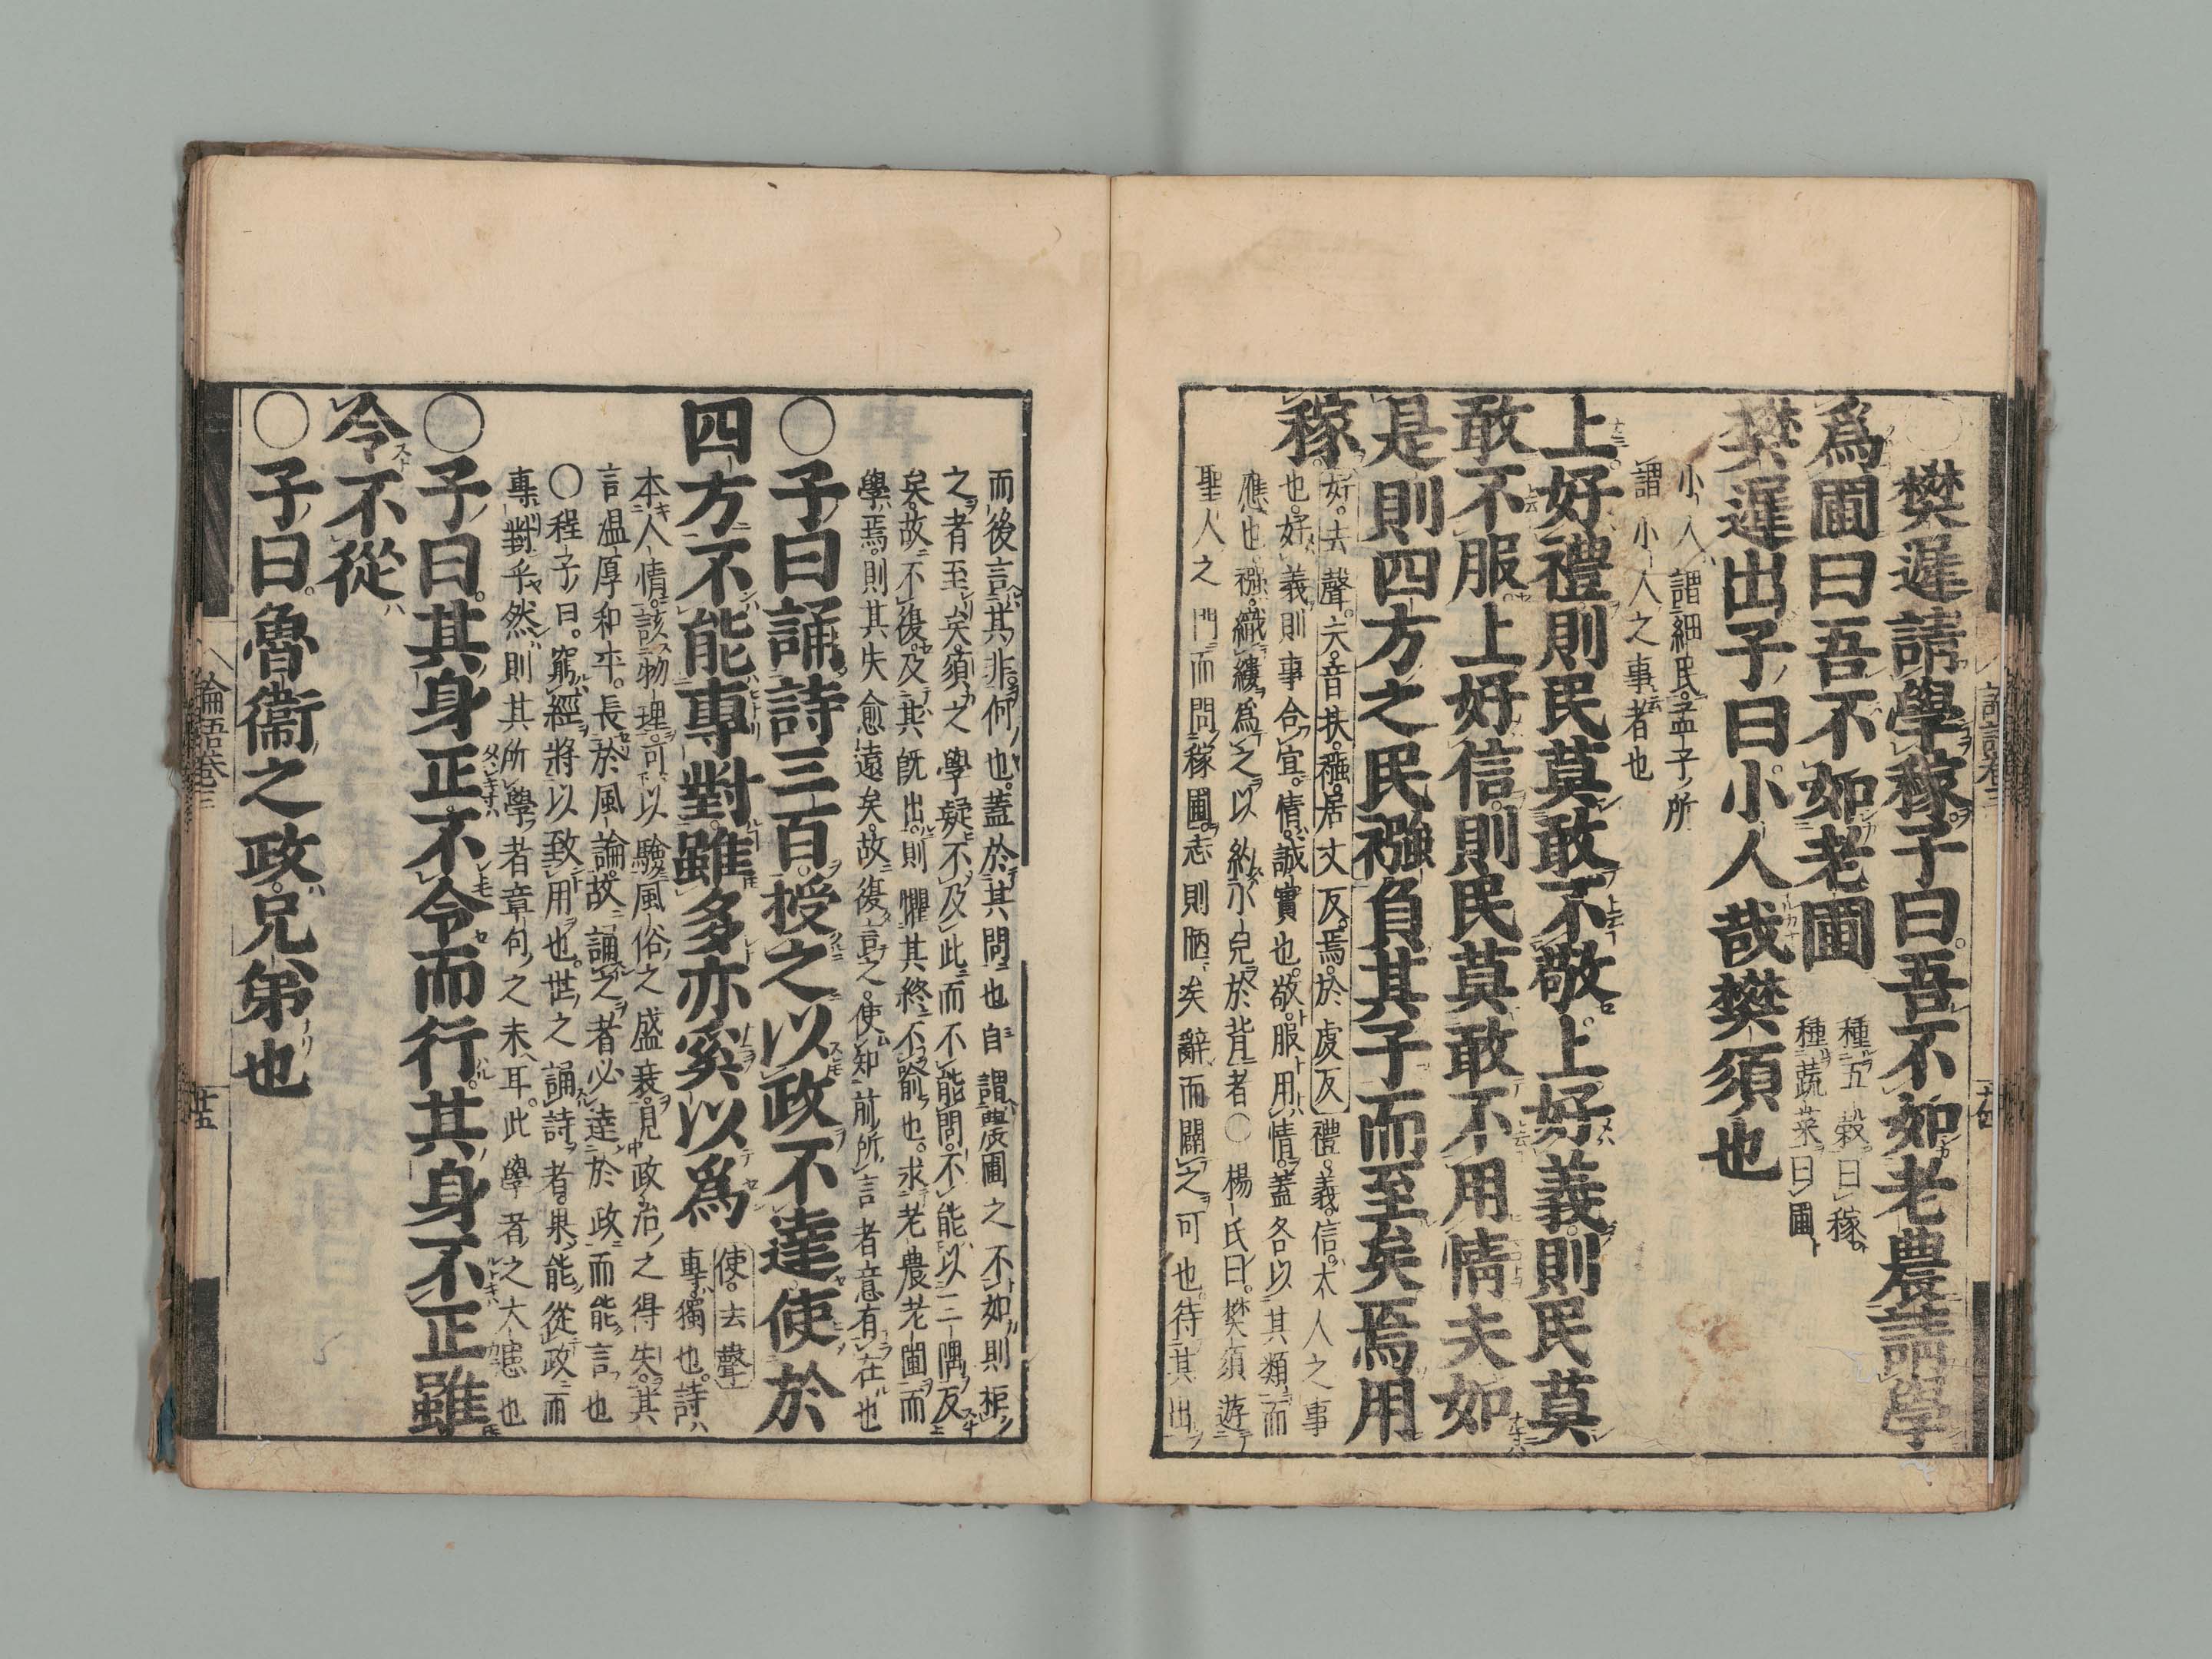 ○樊遲請學稼子曰吾不如老農請學
爲圃曰吾不如老圃
種五穀曰稼
種蔬菜曰圃
樊遲出子曰小人哉樊須也
小人謂細民孟子所
謂小人之事者也
上好禮則民莫敢不敬上好義則民莫
敢不服上好信則民莫敢不用情夫如
是則四方之民襁負其子而至矣焉用
稼
好去聲夫音扶襁居丈反焉於虔反禮義信大人之事
也好義則事合宜情誠實也敬服用情蓋各以其類而
應也襁織縷爲之以約小兒於背者○楊氏曰樊須遊
聖人之門而問稼圃志則陋矣辭而闢之可也待其出
而後言其非何也蓋於其問也自謂農圃之不如則拒
之者至矣須之學疑不及此而不能問不能以三隅反
矣故不復及其旣出則懼其終不喩也求老農老圃而
學焉則其失愈遠矣故復言之使知前所言者意有在也
○子曰誦詩三百授之以政不達使於
四方不能專對雖多亦奚以爲
使去聲
專獨也詩
本人情該物理可以驗風俗之盛衰見政治之得失其
言温厚和平長於風諭故誦之者必達於政而能言也
○程子曰窮經將以致用也世之誦詩者果能從政而
專對乎然則其所學者章句之末耳此學者之大患也
○子曰其身正不令而行其身不正雖
令不從
○子曰魯衞之政兄弟也
論語卷三
廿五